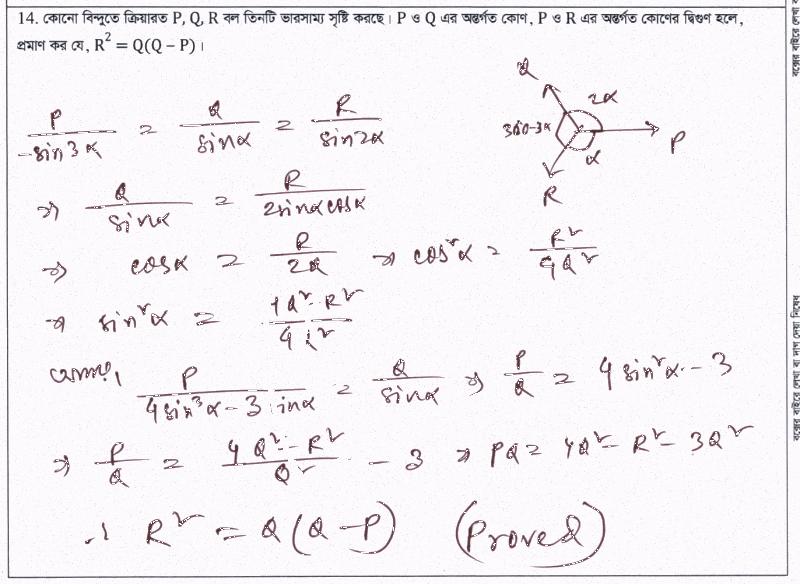 14. কোনো বিন্দুতে ক্রিয়ারত P, Q, R বল তিনটি ভারসাম্য সৃষ্টি করছে। P ও Q এর অন্তর্গত কোণ, P ও R এর অন্তর্গত কোণের দ্বিগুণ হলে,
প্রমাণ কর যে, R² = Q(Q – P)।
Q
2α
360-3α
P
α
R
P/-sin3α = Q/sinα = R/sin2α
⇒ Q/sinα = R/2sinαcosα
⇒ cosα = R/2Q ⇒ cos²α = R²/4Q²
⇒ sin²α = 4Q²-R²/4Q²
আবার, P/4sin³α-3sinα = Q/sinα ⇒ P/Q = 4sin²α-3
⇒ P/Q = 4Q²-R²/Q² - 3 ⇒ PQ = 4Q²-R²-3Q²
∴ R² = Q(Q-P) (Proved)
বক্সের বাইরে লেখা বা দাগ দেয়া নিষেধ